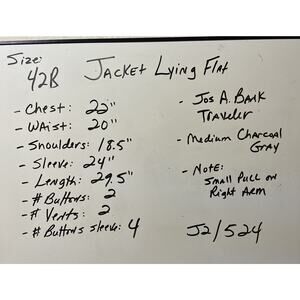 Size:
42R
Jacket Lying Flat
- Chest: 22"
- Waist: 20"
- Shoulders: 18.5"
- Sleeve: 24"
- Length: 29.5"
- # Buttons: 2
- # Vents: 2
- # Buttons sleeve: 4
- Jos A. Bank
Traveler
- Medium Charcoal
Gray
- Note:
Small Pull on
Right Arm
J2/524